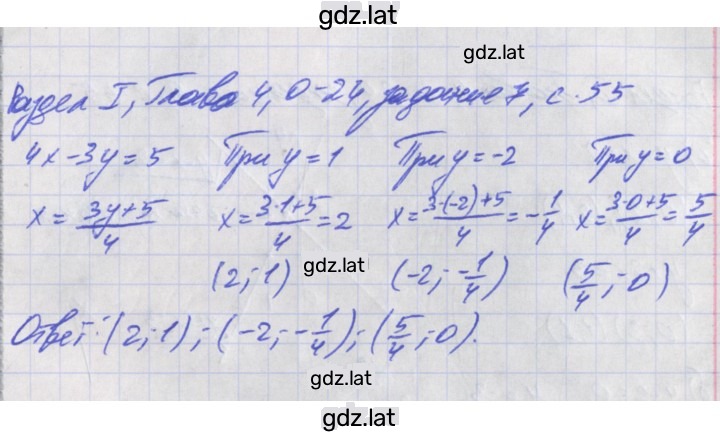 gdz.lat
gdz.lat
Раздел I, Глава 4, О-24, задание 7, с. 55
4x-3y=5 При y=1 При y=-2 При y=0
x= (3y+5)/4 x= (3·1+5)/4 =2 x= (3·(-2)+5)/4 =-1/4 x= (3·0+5)/4 = 5/4
(2; 1) gdz.lat (-2; -1/4) (5/4; 0)
Ответ: (2; 1); (-2; -1/4); (5/4; 0).
gdz.lat
gdz.lat